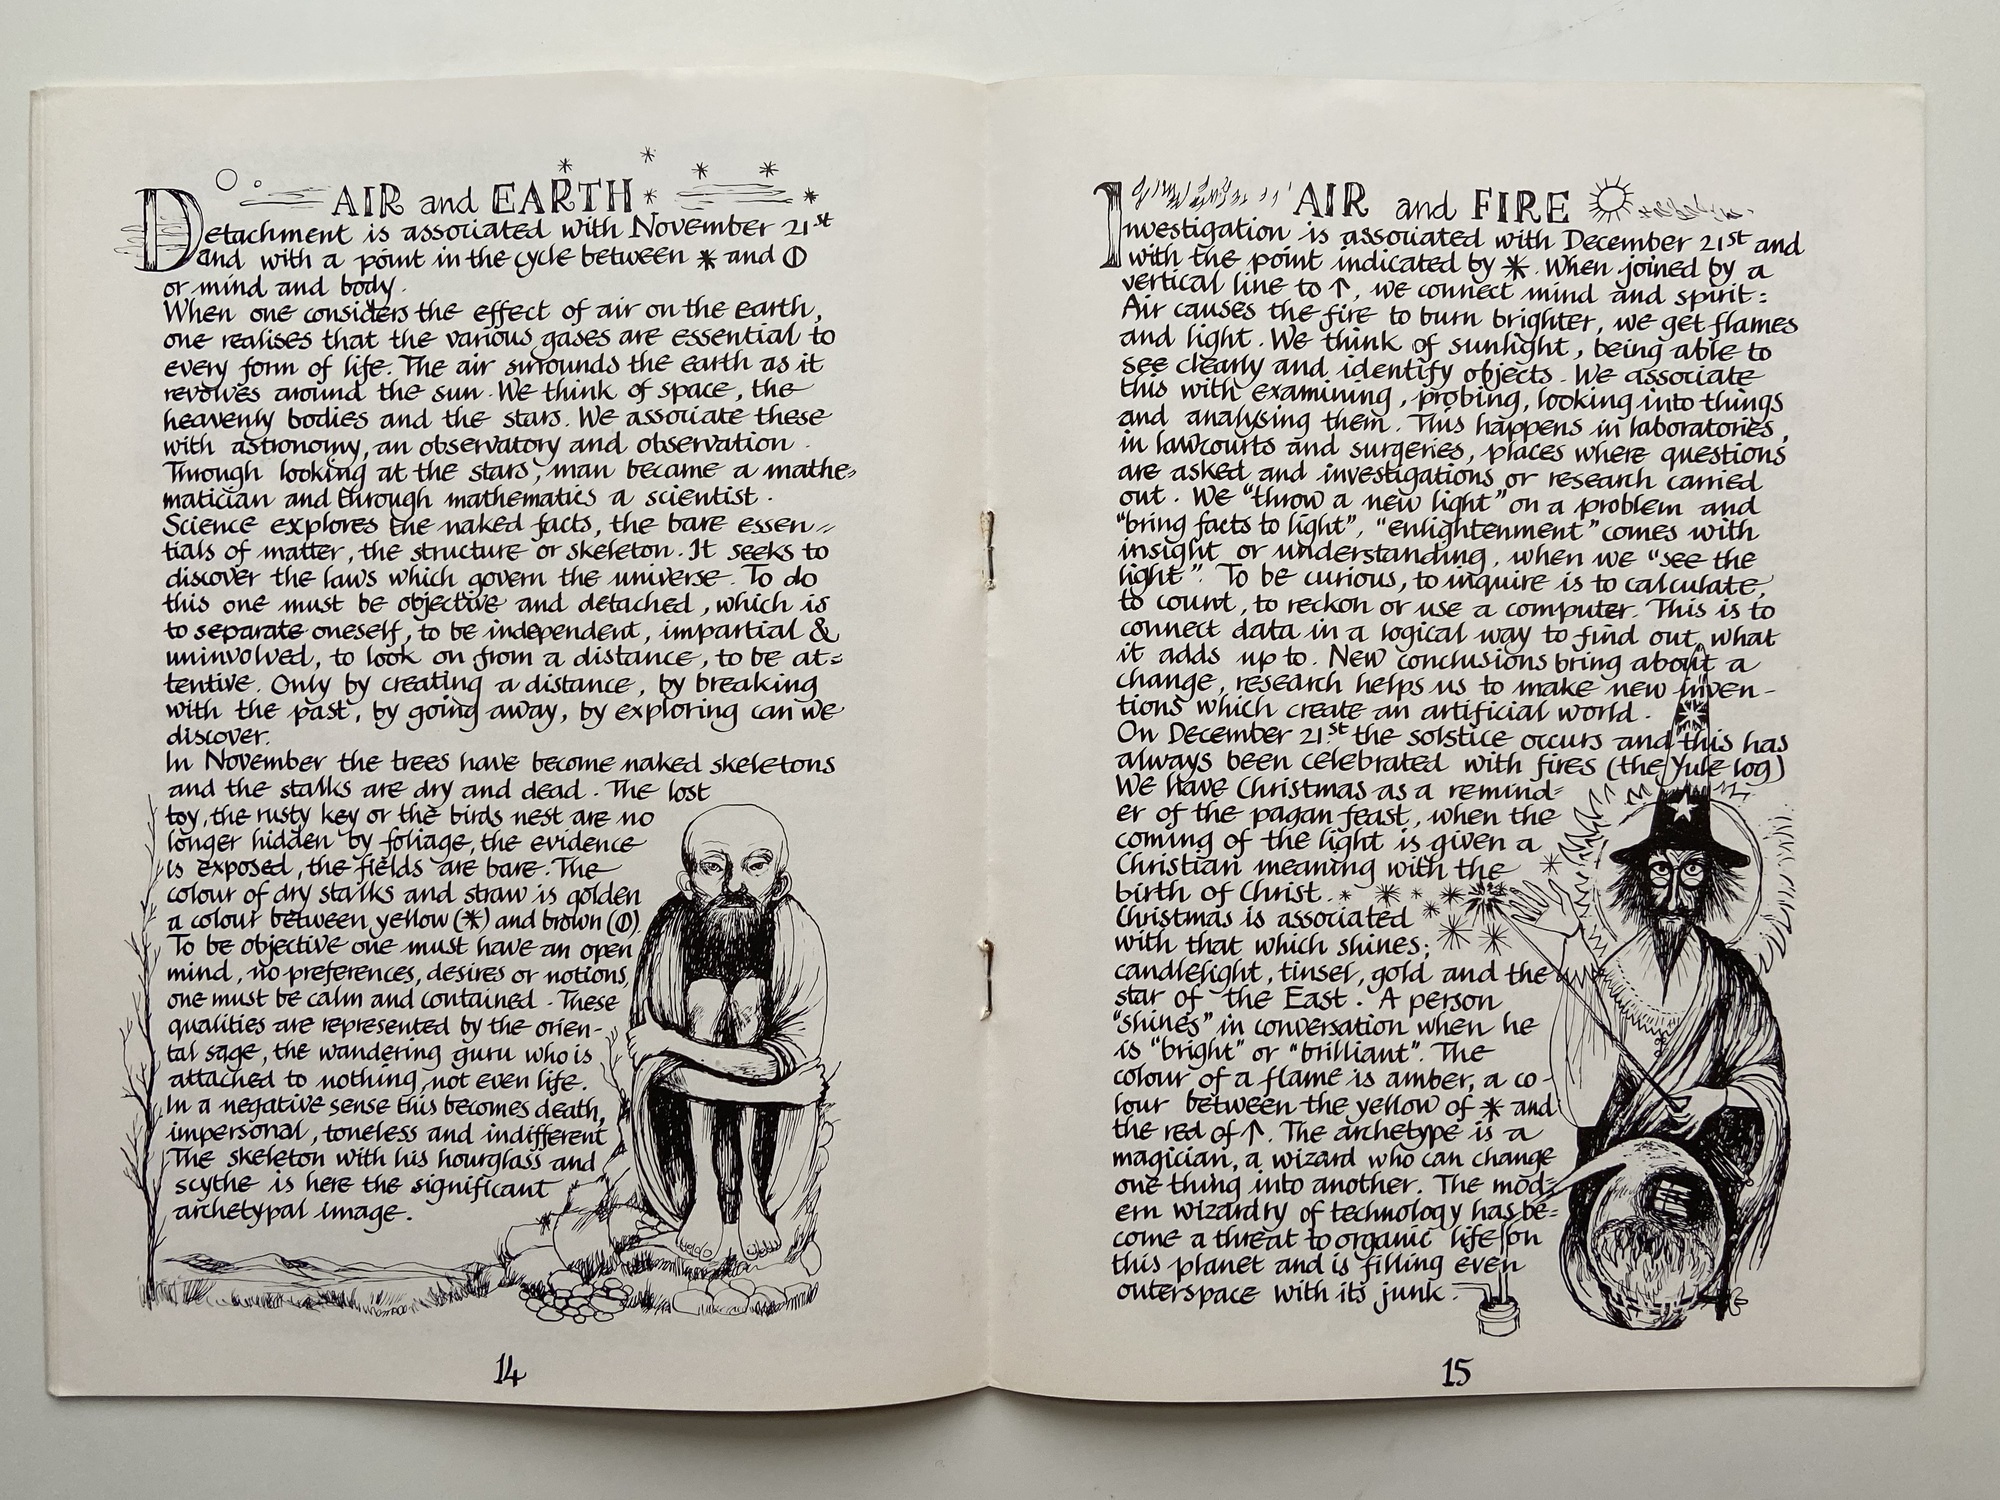 AIR and EARTH
Detachment is associated with November 21st
and with a point in the cycle between * and ⦶
or mind and body.
When one considers the effect of air on the earth,
one realises that the various gases are essential to
every form of life. The air surrounds the earth as it
revolves around the sun. We think of space, the
heavenly bodies and the stars. We associate these
with astronomy, an observatory and observation.
Through looking at the stars, man became a mathe-
matician and through mathematics a scientist.
Science explores the naked facts, the bare essen-
tials of matter, the structure or skeleton. It seeks to
discover the laws which govern the universe. To do
this one must be objective and detached, which is
to separate oneself, to be independent, impartial &
uninvolved, to look on from a distance, to be at-
tentive. Only by creating a distance, by breaking
with the past, by going away, by exploring can we
discover.
In November the trees have become naked skeletons
and the stalks are dry and dead. The lost
toy, the rusty key or the birds nest are no
longer hidden by foliage, the evidence
is exposed, the fields are bare. The
colour of dry stalks and straw is golden
a colour between yellow (*) and brown (⦶).
To be objective one must have an open
mind, no preferences, desires or notions,
one must be calm and contained. These
qualities are represented by the orien-
tal sage, the wandering guru who is
attached to nothing, not even life.
In a negative sense this becomes death,
impersonal, toneless and indifferent
The skeleton with his hourglass and
scythe is here the significant
archetypal image.
14
AIR and FIRE
Investigation is associated with December 21st and
with the point indicated by *. When joined by a
vertical line to ↑, we connect mind and spirit:
Air causes the fire to burn brighter, we get flames
and light. We think of sunlight, being able to
see clearly and identify objects. We associate
this with examining, probing, looking into things
and analysing them. This happens in laboratories,
in lawcourts and surgeries, places where questions
are asked and investigations or research carried
out. We "throw a new light" on a problem and
"bring facts to light", "enlightenment" comes with
insight or understanding, when we "see the
light". To be curious, to inquire is to calculate,
to count, to reckon or use a computer. This is to
connect data in a logical way to find out, what
it adds up to. New conclusions bring about a
change, research helps us to make new inven-
tions which create an artificial world.
On December 21st the solstice occurs and this has
always been celebrated with fires (the Yule log)
We have Christmas as a remind-
er of the pagan feast, when the
coming of the light is given a
Christian meaning with the
birth of Christ.
Christmas is associated
with that which shines;
candlelight, tinsel, gold and the
star of the East. A person
"shines" in conversation when he
is "bright" or "brilliant". The
colour of a flame is amber, a co-
lour between the yellow of * and
the red of ↑. The archetype is a
magician, a wizard who can change
one thing into another. The mod-
ern wizardry of technology has be-
come a threat to organic life on
this planet and is filling even
outerspace with its junk.
15